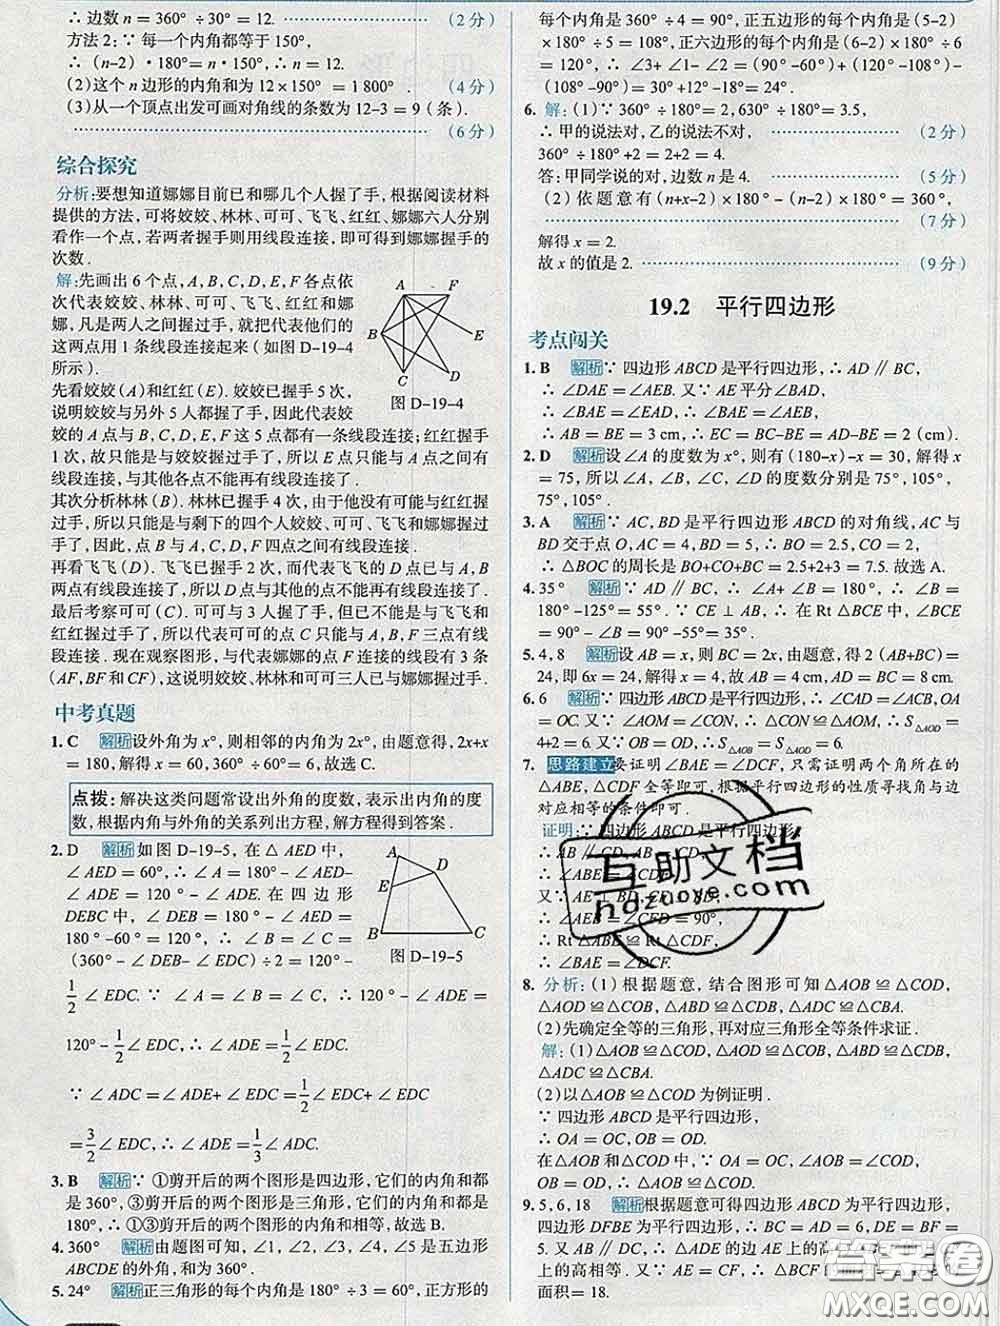 ∴ 边数 n = 360° ÷30° = 12. (2 分)
方法 2：∵ 每一个内角都等于 150°,
∴ (n–2)·180°= n·150°, 解得 n = 12.
(2)这个 n 边形的内角和为 12×150°= 1 800°. (4 分)
(3)从一个顶点出发可画对角线的条数为 12–3 = 9 (条).
(6 分)
综合探究
分析:要想知道娜娜目前已和哪几个人握了手, 根据阅读材料
提供的方法, 可将姣姣、林林、可可、飞飞、红红、娜娜六人分别
看作一个点, 若两者握手则用线段连接, 即可得到娜娜握手的
次数.
解:先画出 6 个点, A, B, C, D, E, F 各点依
次代表姣姣、林林、可可、飞飞、红红和娜
娜, 凡是两人之间握过手, 就把代表他们的
点用 1 条线段连接起来 (如图 D-19-4
所示).
A F B E C D
图 D-19-4
先看姣姣(A) 和红红(E). 姣姣已握手 5 次,
说明姣姣与另外 5 人都握了手, 所以代表姣
姣的 A 点与 B, C, D, E, F 这 5 点都有一条线段连接; 红红握手
1 次, 故只能是与姣姣握了手, 所以 E 点只能与 A 点有线段连
接, 与其他各点不能再有线段连接.
其次分析林林(B). 林林已握手 4 次, 由于他没有可能与红红握
手, 所以只能是与剩下的四个人姣姣、可可、飞飞和娜娜握过
手了, 因此, 点 B 与 A, C, D, F 四点之间有线段连接.
再看飞飞(D). 飞飞已握手 2 次, 而代表飞飞的 D 点已与 A, B
两点有线段连接了, 所以 D 点与其他的点不能再有线段连接了.
最后考察可可(C). 可可与 3 人握了手, 但已不能是与飞飞和
红红握过手了, 所以代表可可的 C 点只能与 A, B, F 三点有线
段连接. 现在观察图形, 与代表娜娜的点 F 连接的线段有 3 条
(AF, BF 和 CF), 这说明姣姣、林林和可可三人已与娜娜握过手.
中考真题
1. C 解析 设外角为 x°, 则相邻的内角为 2x°, 由题意得, 2x+x
= 180, 解得 x = 60, 360°÷60°= 6, 故选 C.
点拨: 解决这类问题常设出外角的度数, 表示出内角的度
数, 根据内角与外角的关系列出方程, 解方程得到答案.
2. D 解析 如图 D-19-5, 在 △ AED 中,
∠ AED = 60°, ∴ ∠ A = 180°– ∠ AED–
∠ ADE = 120° – ∠ ADE. 在四边形
DEBC 中, ∠ DEB = 180° – ∠ AED =
180° –60° = 120°, ∴ ∠ B = ∠ C =
(360°– ∠ DEB– ∠ EDC) ÷2 = 120°–
A D E B C
图 D-19-5
1/2 ∠ EDC. ∵ ∠ A = ∠ B = ∠ C, ∴ 120° – ∠ ADE =
120°–1/2 ∠ EDC, ∴ ∠ ADE = 1/2 ∠ EDC.
∵ ∠ ADC = ∠ ADE + ∠ EDC = 1/2 ∠ EDC + ∠ EDC
= 3/2 ∠ EDC, ∴ ∠ ADE = 1/3 ∠ ADC.
3. B 解析 ∵ ①剪开后的两个图形是四边形, 它们的内角和都
是 360°, ③剪开后的两个图形是三角形, 它们的内角和都是
180°, ∴ ①③剪开后的两个图形的内角和相等, 故选 B.
4. 360° 解析 由题图可知, ∠1, ∠2, ∠3, ∠4, ∠5 是五边形
ABCDE 的外角, 和为 360°.
5. 24° 解析 正三角形的每个内角是 180° ÷3 = 60°, 正方形的
每个内角是 360° ÷4 = 90°, 正五边形的每个内角是 (5–2)
×180° ÷5 = 108°, 正六边形的每个内角是 (6–2) ×180° ÷6
= 120°, ∴ ∠3+ ∠1– ∠2 = (90°–60°) + (120°–108°) –
(108° –90°) = 30° +12° –18° = 24°.
6. 解: (1)∵ 360° ÷180°= 2, 630° ÷180°= 3.5,
∴ 甲的说法对, 乙的说法不对, (2 分)
360° ÷180° +2 = 2+2 = 4.
答: 甲同学说的对, 边数 n 是 4. (5 分)
(2) 依题意有 (n+x–2) ×180° – (n–2) ×180° = 360°,
(7 分)
解得 x = 2.
故 x 的值是 2. (9 分)
19.2 平行四边形
考点闯关
1. B 解析 ∵ 四边形 ABCD 是平行四边形, ∴ AD ∥ BC,
∴ ∠DAE = ∠AEB. 又∵ AE 平分∠BAD,
∴ ∠BAE = ∠EAD, ∴ ∠BAE = ∠AEB,
∴ AB = BE = 3 cm, ∴ EC = BC–BE = AD–BE = 2 (cm).
2. D 解析 设∠A 的度数为 x°, 则有 (180–x)–x = 30, 解得 x
= 75, 所以∠A, ∠B, ∠C, ∠D 的度数分别是 75°, 105°,
75°, 105°.
3. A 解析 ∵ AC, BD 是平行四边形 ABCD 的对角线, AC 与
BD 交于点 O, AC = 4, BD = 5, ∴ BO = 2.5, CO = 2,
∴ △BOC 的周长是 BO+CO+BC = 2.5+2+3 = 7.5. 故选 A.
4. 35° 解析 ∵ AD ∥ BC, ∴ ∠A+ ∠B = 180°, ∴ ∠B =
180°–125°= 55°. ∵ CE ⊥ AB, ∴ 在 Rt △BCE 中, ∠BCE
= 90° – ∠B = 90° –55°= 35°.
5. 4, 8 解析 设 AB = x, 则 BC = 2x, 由题意, 得 2 (AB+BC) =
24, 即 6x = 24, 解得 x = 4, 故 AB = DC = 4 cm, AD = BC = 8 cm.
6. 6 解析 ∵ 四边形 ABCD 是平行四边形, ∴ ∠CAD = ∠ACB, OA
= OC. 又∵ ∠AOM = ∠CON, ∴ △CON ≌ △AOM, ∴ S△AOD =
4+2 = 6. 又∵ OB = OD, ∴ S△AOB = S△AOD = 6.
7. 思路建立 要证明 ∠BAE = ∠DCF, 只需证明两个角所在的
△ABE, △CDF 全等即可, 根据平行四边形的性质寻找角与边
对应相等的条件即可.
证明:∵ 四边形 ABCD 是平行四边形,
∴ AB ∥ CD, AB = CD,
∴
又∵ AE ⊥ BD,
∴ ∠AEB = ∠CFD = 90°,
∴ Rt △ABE ≌ Rt △CDF,
∴ ∠BAE = ∠DCF.
8. 分析: (1) 根据题意, 结合图形可知 △AOB ≌ △COD,
△AOD ≌ △COB, △ABD ≌ △CDB, △ADC ≌ △CBA.
(2) 先确定全等的三角形, 再对应三角形全等条件求证.
解: (1) △AOB ≌ △COD, △AOD ≌ △COB, △ABD ≌ △CDB,
△ADC ≌ △CBA.
(2) 以△AOB ≌ △COD 为例证明.
∵ 四边形 ABCD 是平行四边形,
∴ OA = OC, OB = OD.
在△AOB 和△COD 中, ∵
∴ △AOB ≌ △COD.
9. 5, 6, 18 解析 根据题意可得四边形 ABCD 为平行四边形,
四边形 DFBE 为平行四边形, ∴ AD = BC = 6, DE = BF =
5. 又∵ AB∥DC, ∴ △ADE 的边 AE 上的高
上的高相等. 又∵ AE = CF, ∴
面积= 18.
互助文档
hdzuoye.com
答案卷
MXQE.COM